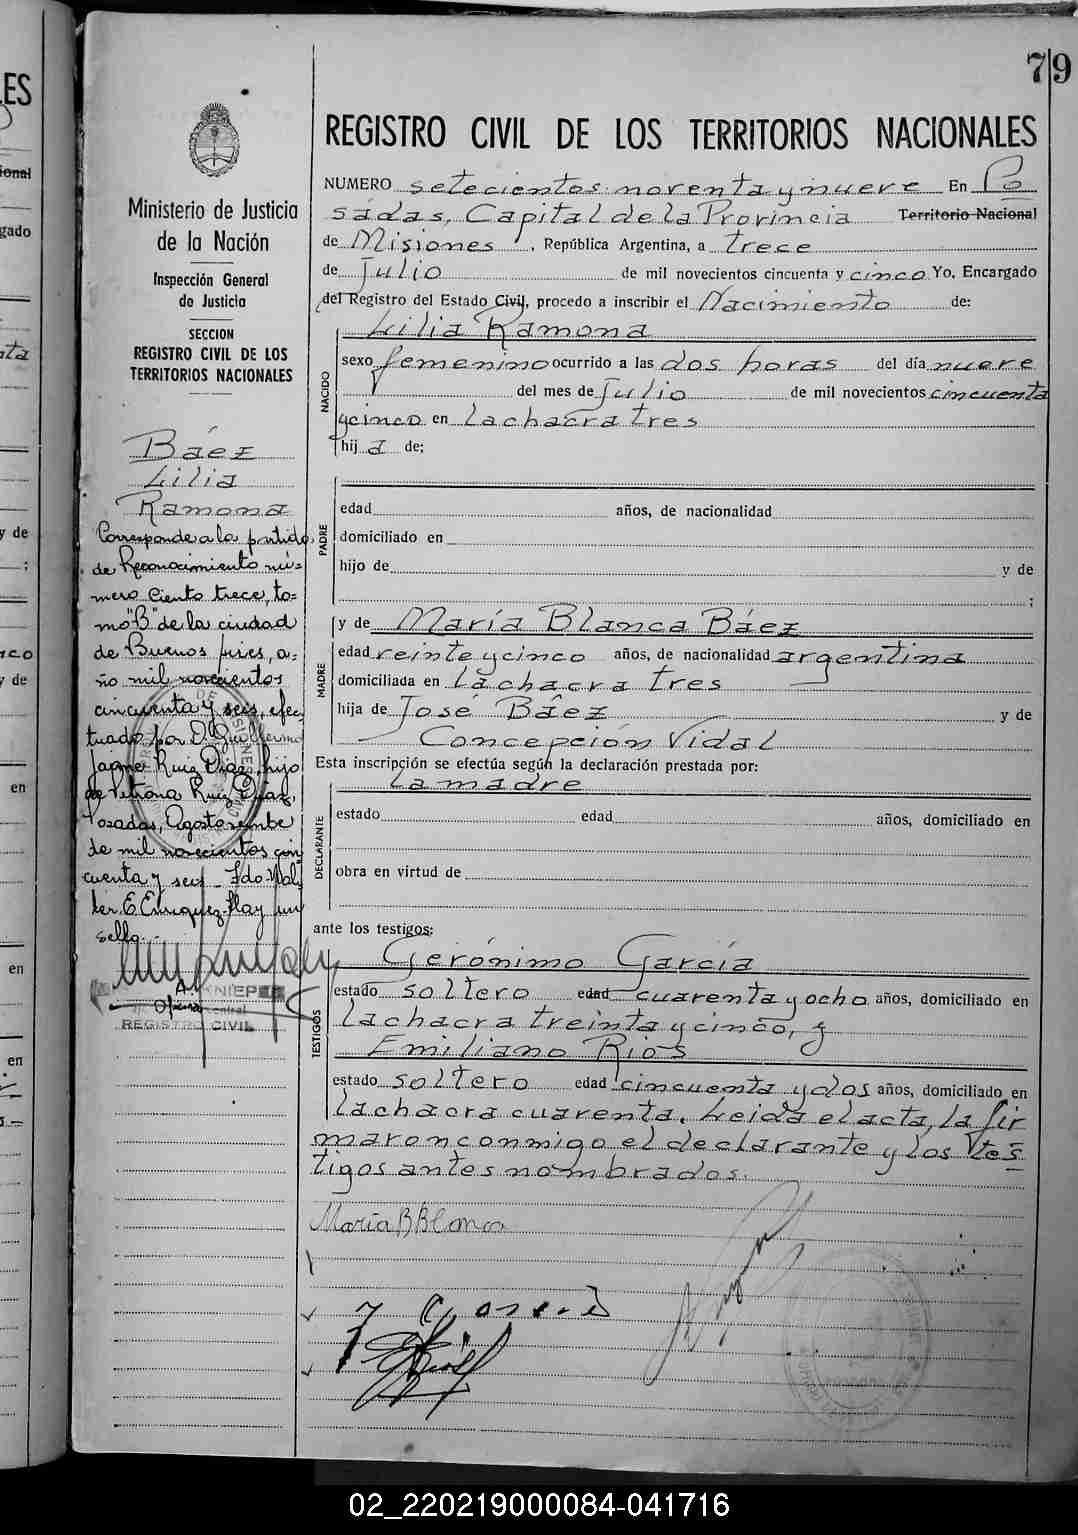 79
REGISTRO CIVIL DE LOS TERRITORIOS NACIONALES
NUMERO setecientos noventa y nueve En Po
sadas, Capital de la Provincia Territorio Nacional
de Misiones, República Argentina, a trece
de Julio de mil novecientos cincuenta y cinco Yo, Encargado
del Registro del Estado Civil, procedo a inscribir el Nacimiento de:
NACIDO
Lilia Ramona
sexo femenino ocurrido a las dos horas del día nueve
del mes de Julio de mil novecientos cincuenta
y cinco en la chacra tres
hij a de;
PADRE
edad años, de nacionalidad
domiciliado en
hijo de y de
;
MADRE
y de María Blanca Báez
edad veinte y cinco años, de nacionalidad argentina
domiciliada en la chacra tres
hija de José Báez y de
Concepción Vidal
Esta inscripción se efectúa según la declaración prestada por:
DECLARANTE
la madre
estado edad años, domiciliado en
obra en virtud de
ante los testigos:
TESTIGOS
Gerónimo García
estado soltero edad cuarenta y ocho años, domiciliado en
la chacra treinta y cinco, y
Emiliano Rios
estado soltero edad cincuenta y dos años, domiciliado en
la chacra cuarenta. Leida el acta, la fir
maron conmigo el declarante y los tes
tigos antes nombrados.
María B Blanca
Ministerio de Justicia
de la Nación
Inspección General
de Justicia
SECCION
REGISTRO CIVIL DE LOS
TERRITORIOS NACIONALES
Báez
Lilia
Ramona
Corresponde a la partida
de Reconocimiento nú=
mero ciento trece, to=
mo "B" de la ciudad
de Buenos Aires, a=
ño mil novecientos
cincuenta y seis, efec
tuado por D. Guillermo
Jaime Ruiz Diaz, hijo
de Petrona Ruiz Diaz.
Posadas, Agosto veinte
de mil novecientos cin
cuenta y seis - Fdo. Wal
ter E. Enriquez. Hay un
sello.
REGISTRO CIVIL
02_220219000084-041716